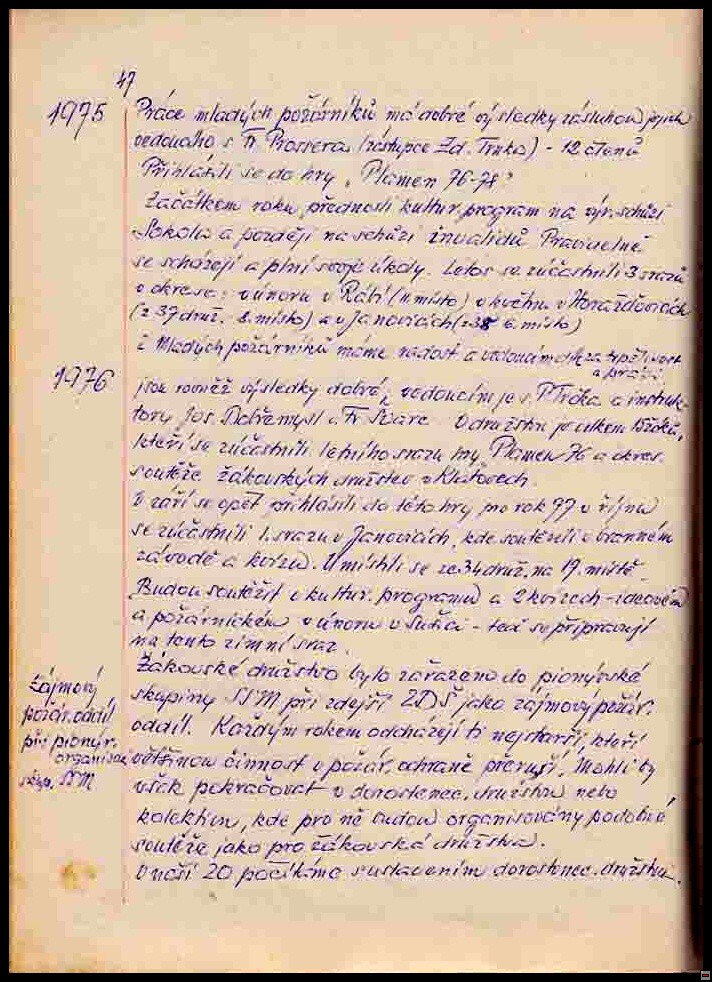 47
1975
Práce mladých požárníků má dobré výsledky zásluhou jejich
vedoucího s. Fr. Prossera (zástupce Zd. Trnka) - 12 členů
Přihlásili se do hry "Plamen 76-78"
Začátkem roku přednesli kultur. program na výr. schůzi
Sokola a později na schůzi invalidů Pravidelně
se scházejí a plní svoje úkoly. Letos se zúčastnili 3 srazů
v okrese: v únoru v Rábí (11. místo) v květnu v Horažďovicích
(z 37 druž. 8. místo) a v Janovicích (z 38 6. místo)
z Mladých požárníků máme radost a vedoucím dík za trpělivost
a práci
1976
jsou rovněž výsledky dobré, vedoucím je s. a instruk-
tory Jos. Dobřemysl a Fr. Švarc. V družstvu je celkem žáků,
kteří se zúčastnili letního srazu hry Plamen 76 a okres.
soutěže žákovských družstev v Klatovech.
V září se opět přihlásili do této hry pro rok 77 v říjnu
se zúčastnili 1. srazu v Janovicích, kde soutěžili v branném
závodě a kvízu. Umístili se ze 34 druž. na 19. místě.
Budou soutěžit v kultur. programu a 2 kvízech - ideovém
a požárnickém v únoru v Sušici - teď se připravují
na tento zimní sraz.
Zájmový
požár. oddíl
při pionýr.
organisaci
skup. SSM
Žákovské družstvo bylo zařazeno do pionýrské
skupiny SSM při zdejší ZDŠ jako zájmový požár.
oddíl. Každým rokem odcházejí ti nejstarší, kteří
většinou činnost v požár. ochraně přeruší. Mohli by
však pokračovat v dorostenec. družstvu nebo
kolektivu, kde pro ně budou organisovány podobné
soutěže jako pro žákovská družstva.
V naší ZO počítáme s ustavením dorostenec. družstva.